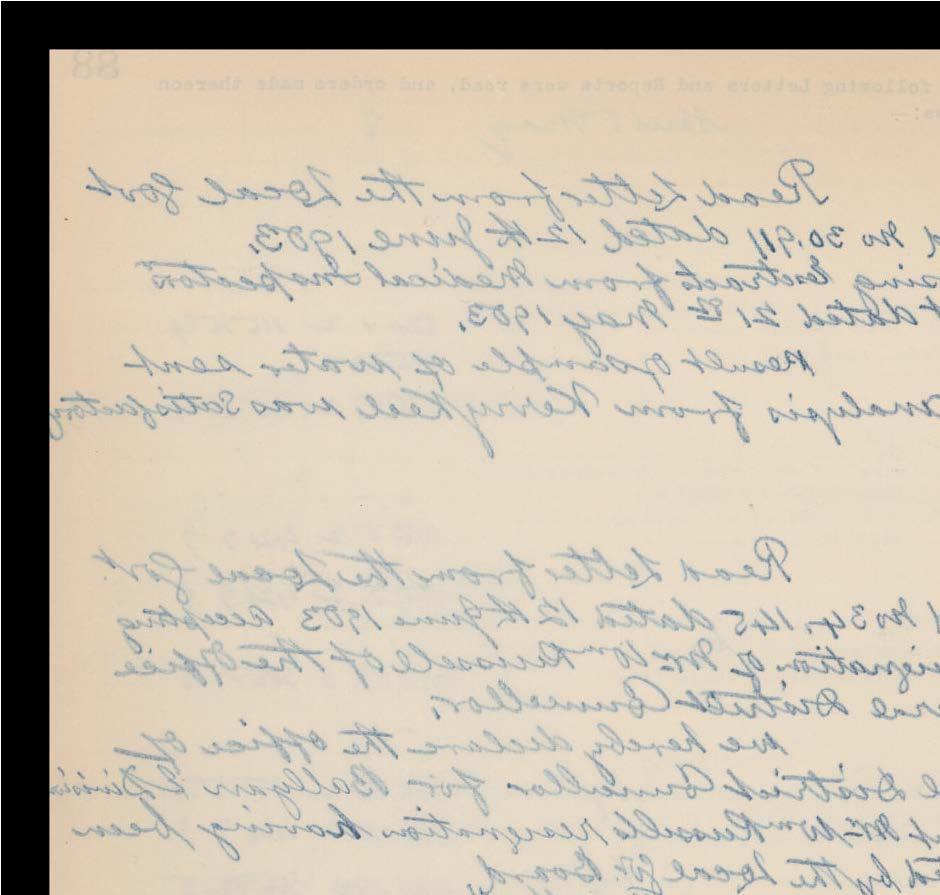 88
following Letters and Reports were read, and orders made thereon
Read Letter from the Local Govt
No 30.911 dated 12th June 1903.
Extract from Medical Inspectors
dated 21st May 1903.
Result of sample of water sent
analysis from Kerrykeel was Satisfactory
Read Letter from the Local Govt
No 34.145 dated 12th June 1903 accepting
of Mr Wm Russell of the Office
District Councillor.
we hereby declare the office of
District Councillor for Ballyarr E Division
Mr Wm Russells resignation having been
by the Local Gov Board,